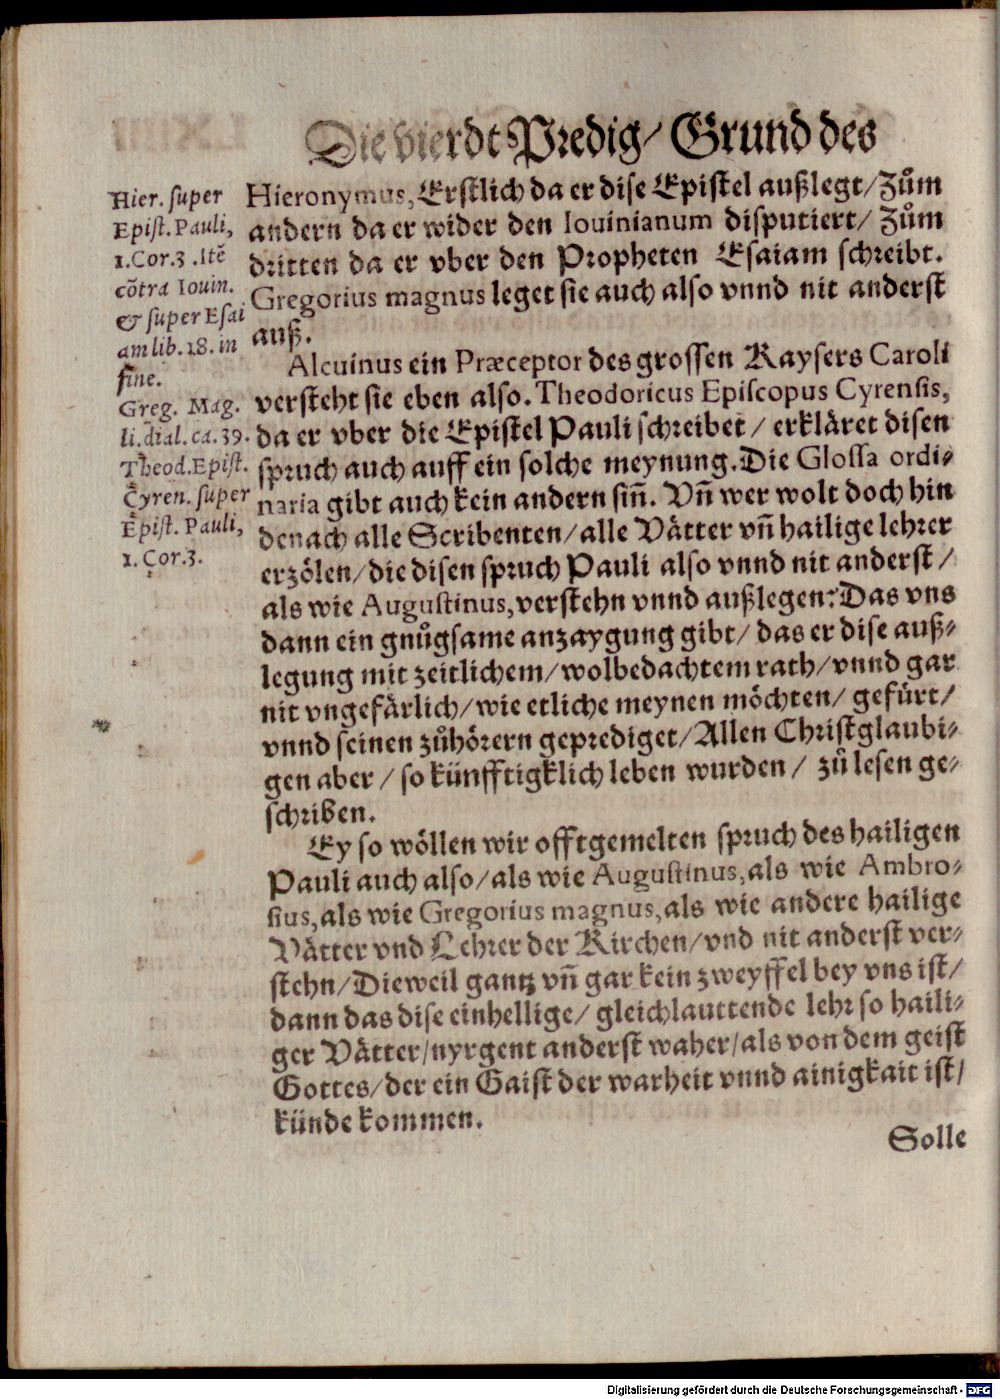 Die vierdt Predig/ Grund des
Hier. super
Epist. Pauli,
1. Cor. 3 . Itē
cōtra Iouin.
& super Esai
am lib. 18. in
fine.
Greg. Mag.
li. dial. ca. 39.
Theod. Epist.
Cyren. super
Epist. Pauli,
1. Cor. 3.
Hieronymus, Erstlich da er dise Epistel außlegt/ Zům
andern da er wider den Iouinianum disputiert/ Zům
dritten da er vber den Propheten Esaiam schreibt.
Gregorius magnus leget sie auch also vnnd nit anderst
auß.
Alcuinus ein Præceptor des grossen Kaysers Caroli
versteht sie eben also. Theodoricus Episcopus Cyrensis,
da er vber die Epistel Pauli schreibet / erkläret disen
spruch auch auff ein solche meynung. Die Glossa ordi-
naria gibt auch kein andern siñ. Vñ wer wolt doch hin
denach alle Scribenten/ alle Vätter vñ hailige lehrer
erzölen/ die disen spruch Pauli also vnnd nit anderst /
als wie Augustinus, verstehn vnnd außlegen? Das vns
dann ein gnůgsame anzaygung gibt/ das er dise auß-
legung mit zeitlichem/ wolbedachtem rath/ vnnd gar
nit vngefärlich/ wie etliche meynen möchten/ gefürt/
vnnd seinen zůhörern geprediget/ Allen Christglaubi-
gen aber / so künfftigklich leben wurden / zů lesen ge-
schriben.
Ey so wöllen wir offtgemelten spruch des hailigen
Pauli auch also/ als wie Augustinus, als wie Ambro-
sius, als wie Gregorius magnus, als wie andere hailige
Vätter vnd Lehrer der Kirchen/ vnd nit anderst ver-
stehn/ Dieweil gantz vñ gar kein zweyffel bey vns ist/
dann das dise einhellige/ gleichlauttende lehr so haili-
ger Vätter/ nyrgent anderst waher/ als von dem geist
Gottes/ der ein Gaist der warheit vnnd ainigkait ist/
künde kommen.
Solle
Digitalisierung gefördert durch die Deutsche Forschungsgemeinschaft - DFG